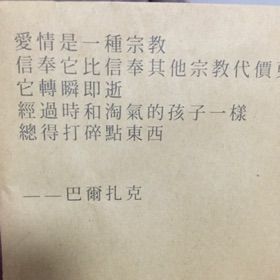 愛情是一種宗教
信奉它比信奉其他宗教代價
它轉瞬即逝
經過時和淘氣的孩子一樣
總得打碎點東西
——巴爾扎克